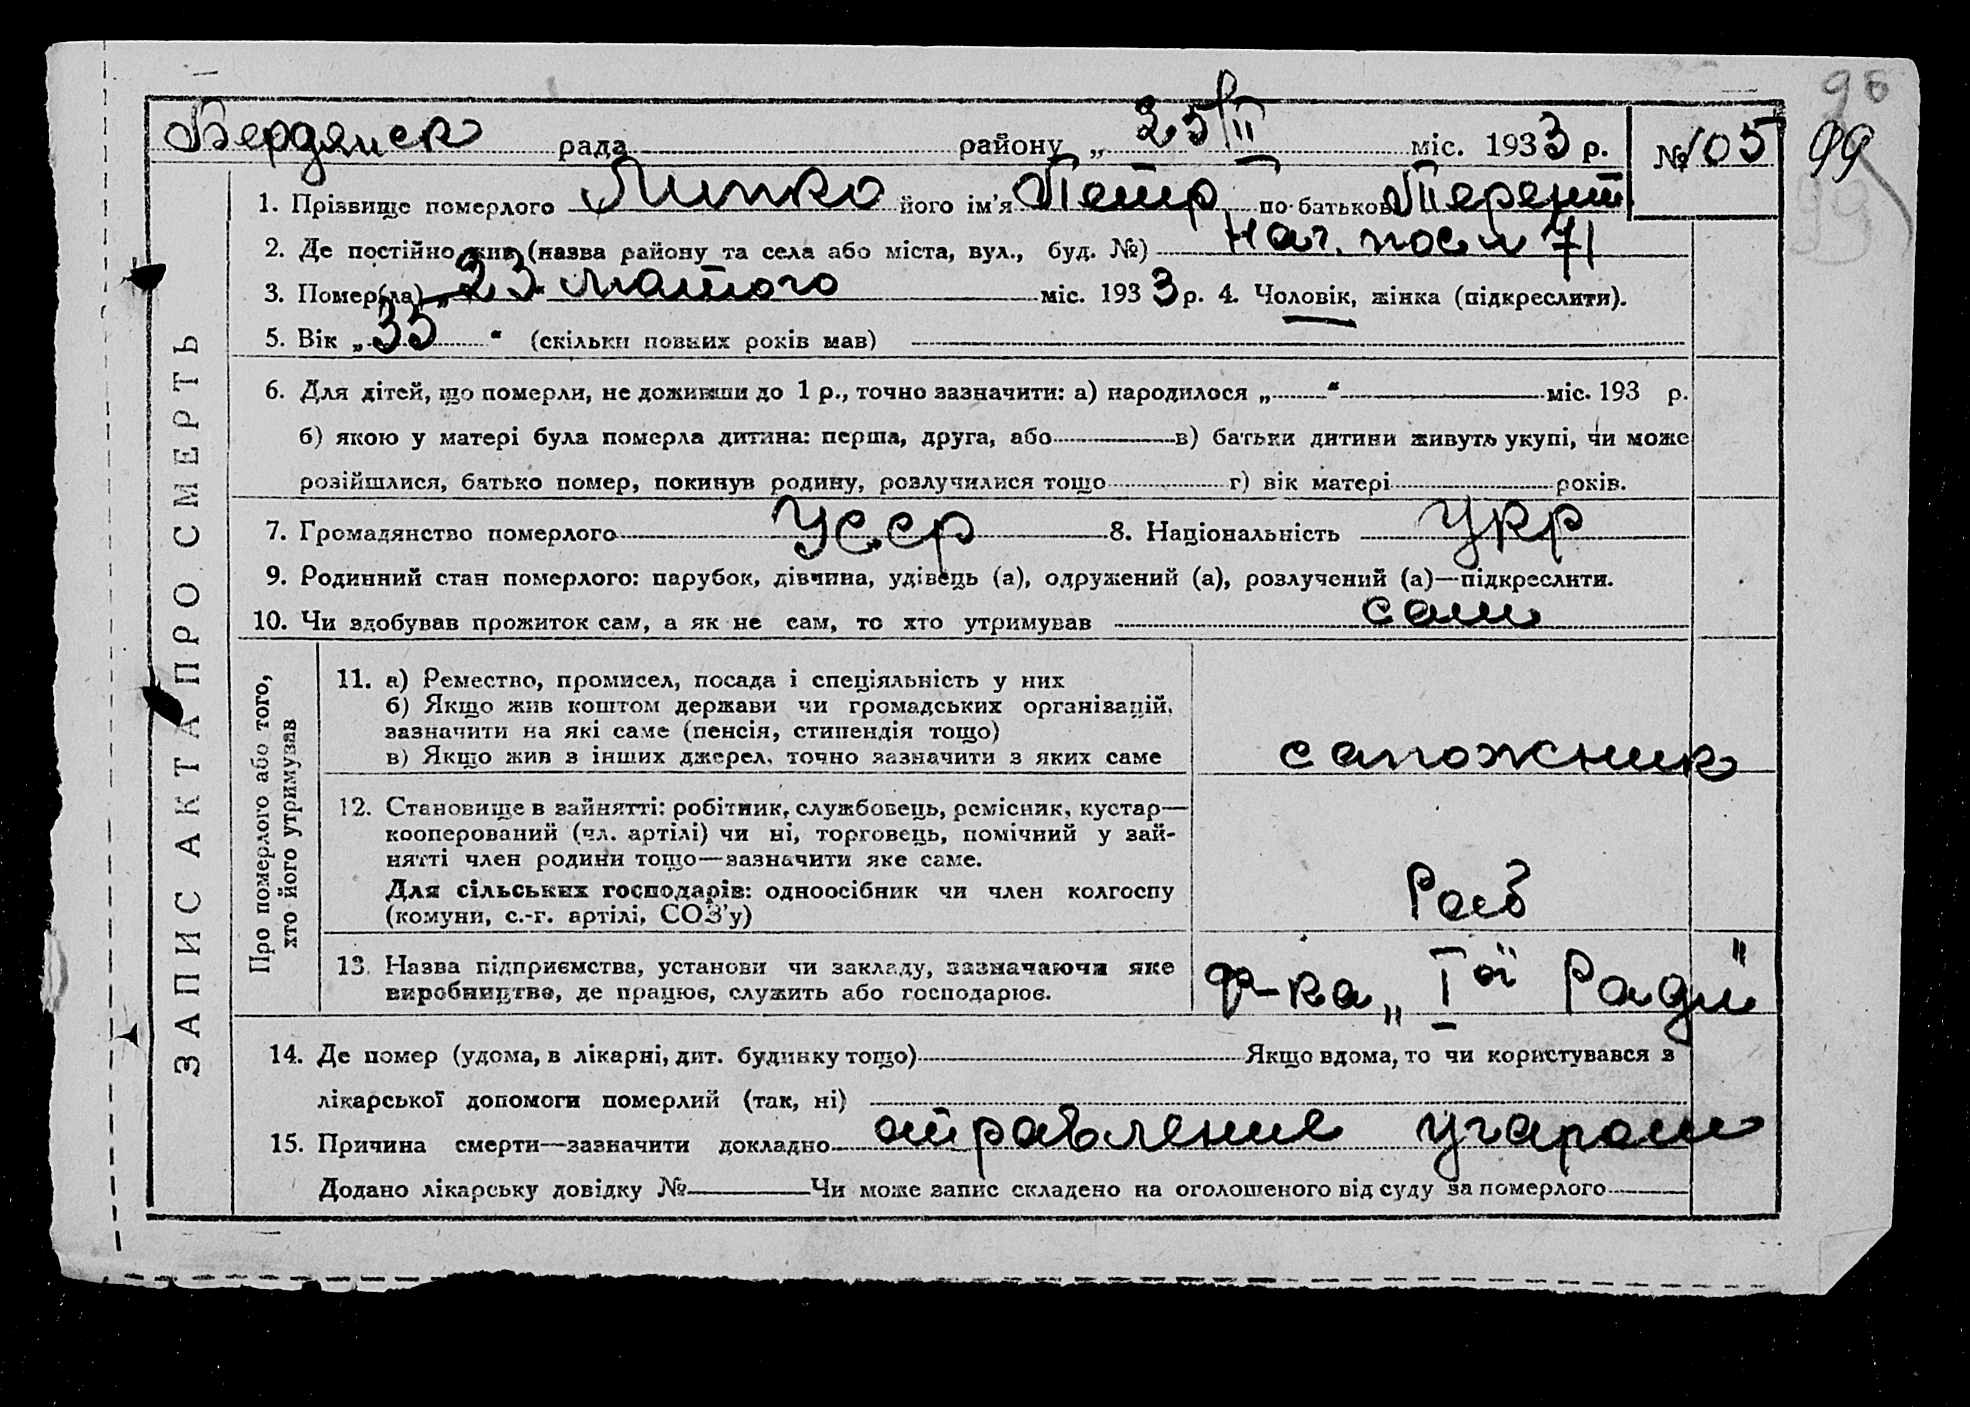 96
Бердянск рада району „ 25/II міс. 1933 р. № 105 99
99
1. Прізвище померлого Липко його ім'я Петр по-батькові Терент
2. Де постійно жив (назва району та села або міста, вул., буд. №) Наг. пос. 71
3. Помер(ла) „ 23 " лютого міс. 1933 р. 4. Чоловік, жінка (підкреслити).
5. Вік „ 35 " (скільки повних років мав)
6. Для дітей, що померли, не доживши до 1 р., точно зазначити: а) народилося „ " міс. 193 р.
б) якою у матері була померла дитина: перша, друга, або в) батьки дитини живуть укупі, чи може
розійшлися, батько помер, покинув родину, розлучилися тощо г) вік матері років.
7. Громадянство померлого УССР 8. Національність Укр
9. Родинний стан померлого: парубок, дівчина, удівець (а), одружений (а), розлучений (а)—підкреслити.
10. Чи здобував прожиток сам, а як не сам, то хто утримував сам
ЗАПИС АКТА ПРО СМЕРТЬ
Про померлого або того,
хто його утримував
11. а) Ремество, промисел, посада і спеціяльність у них
б) Якщо жив коштом держави чи громадських організацій,
зазначити на які саме (пенсія, стипендія тощо)
в) Якщо жив з інших джерел, точно зазначити з яких саме
сапожник
12. Становище в зайнятті: робітник, службовець, ремісник, кустар—
кооперований (чл. артілі) чи ні, торговець, помічний у зай-
нятті член родини тощо—зазначити яке саме.
Для сільських господарів: одноосібник чи член колгоспу
(комуни, с.-г. артілі, СОЗ'у)
Раб
13. Назва підприємства, установи чи закладу, зазначаючи яке
виробництво, де працює, служить або господарює.
ф-ка „ Iої Ради "
14. Де помер (удома, в лікарні, дит. будинку тощо) Якщо вдома, то чи користувався з
лікарської допомоги померлий (так, ні)
15. Причина смерти—зазначити докладно отравление угаром
Додано лікарську довідку № Чи може запис складено на оголошеного від суду за померлого